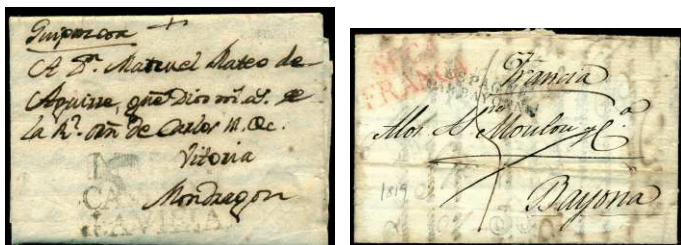 Guipuzcoa
A Dn. Manuel Mateo de
Aguirre, que Dios m. as. de
la Rl. orn. de Carlos III. &c.
Vitoria
Mondragon
CA
LA VIEJA
FRANCA
Francia
A los Sres Moulou y Ca.
5
Bayona
1819